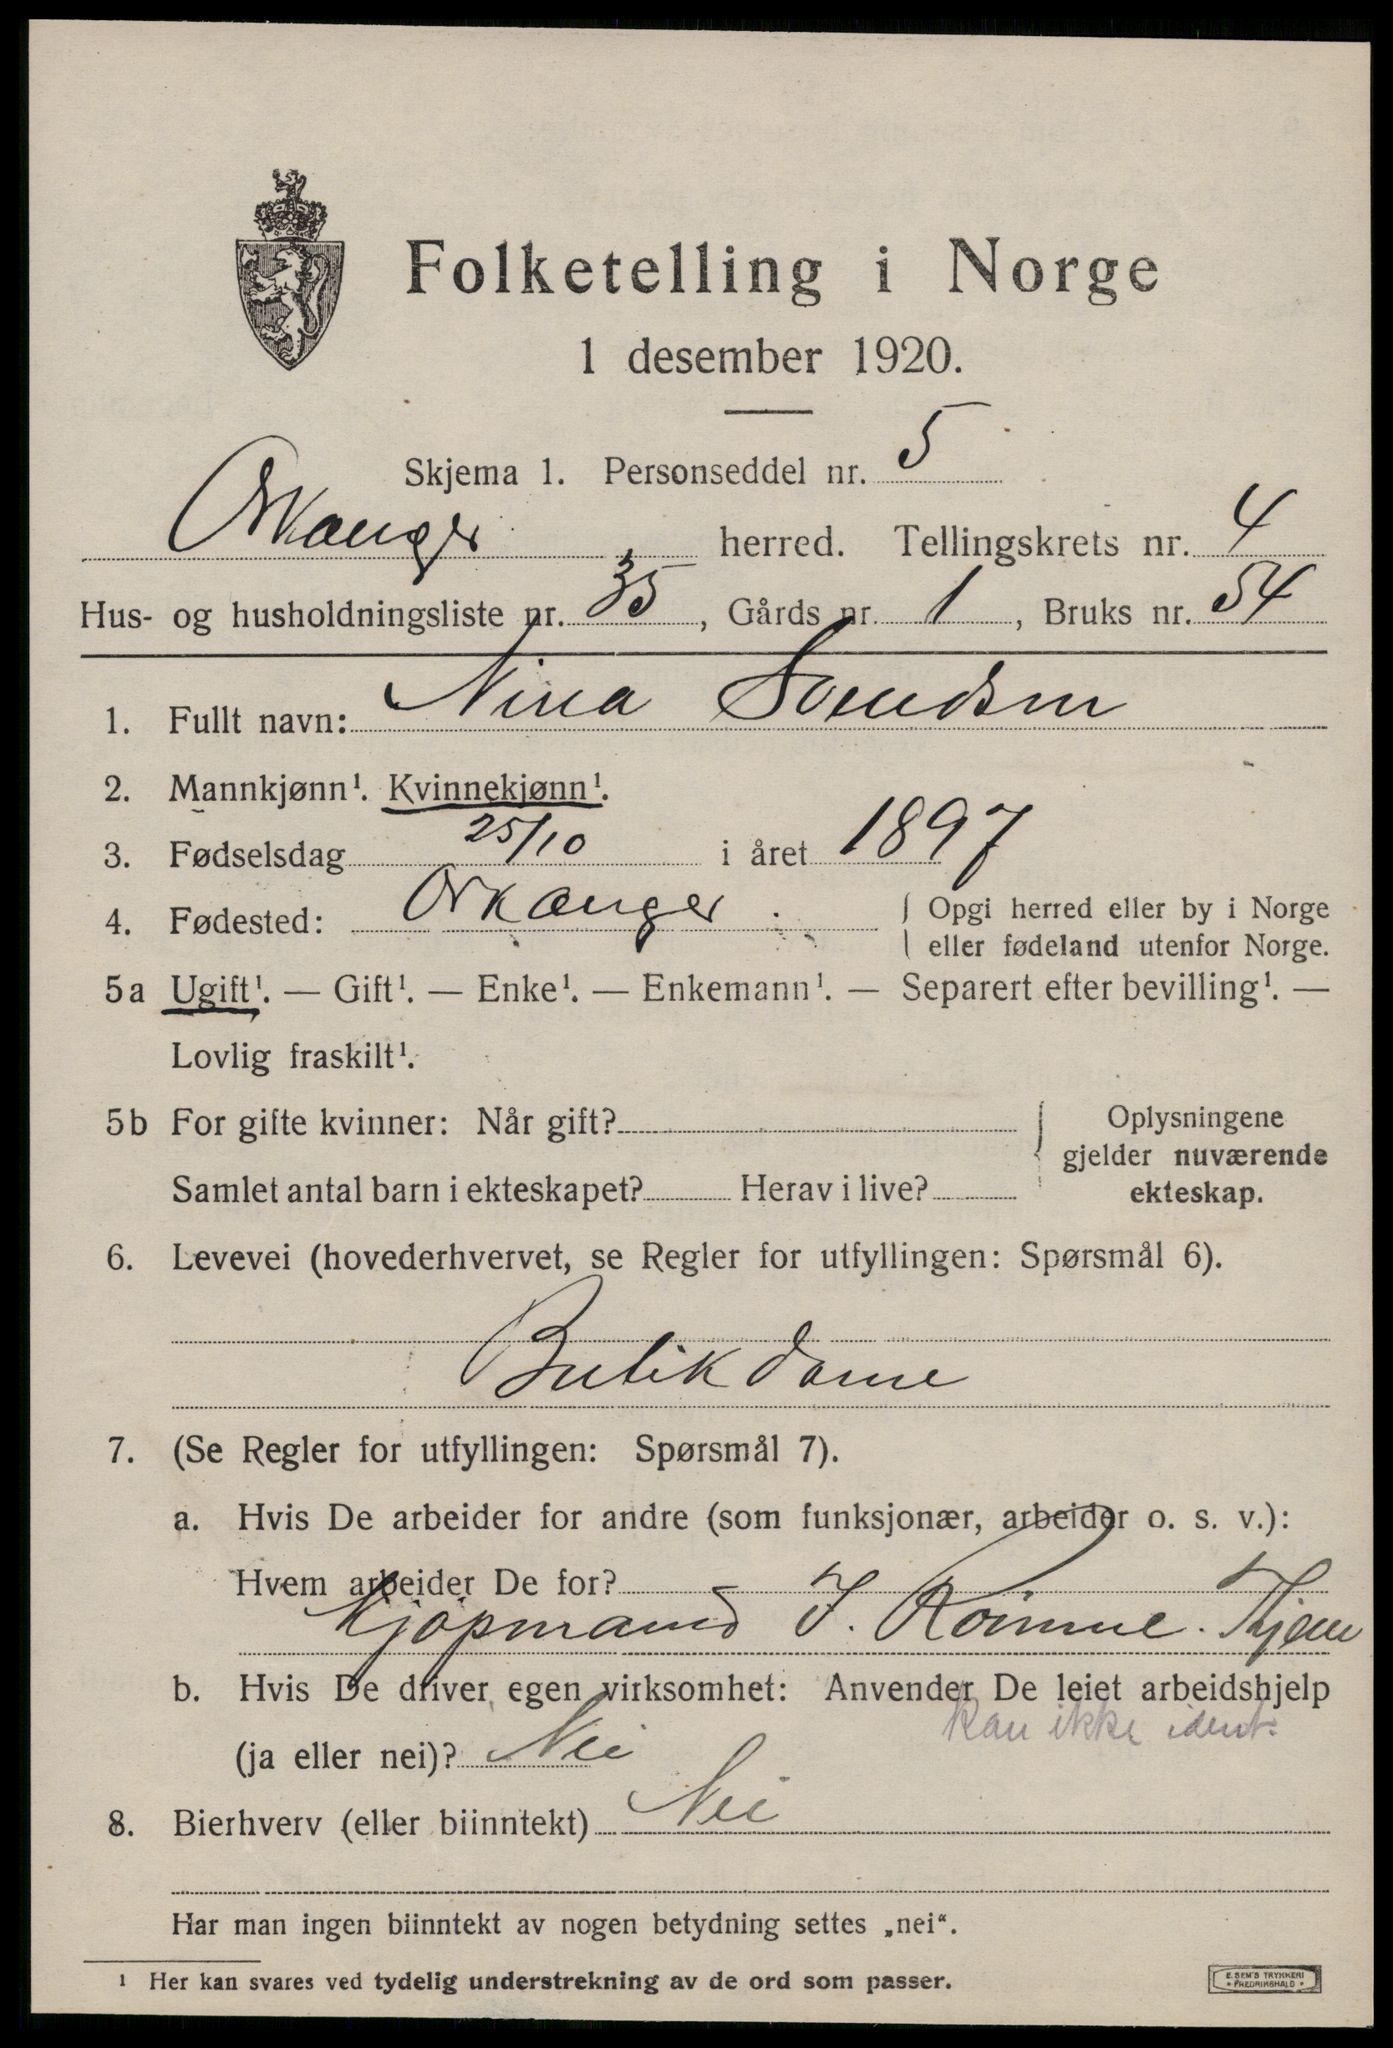 Folketelling i Norge
1 desember 1920.
Skjema 1. Personseddel nr. 5
Orkanger herred. Tellingskrets nr. 4
Hus- og husholdningsliste nr. 35, Gårds nr. 1, Bruks nr. 54
1. Fullt navn: Nina Svendsen
2. Mannkjønn¹. Kvinnekjønn¹.
3. Fødselsdag 25/10 i året 1897
4. Fødested: Orkanger. { Opgi herred eller by i Norge
eller fødeland utenfor Norge.
5a Ugift¹. — Gift¹. — Enke¹. — Enkemann¹. — Separert efter bevilling¹. —
Lovlig fraskilt¹.
5b For gifte kvinner: Når gift? { Oplysningene
gjelder nuværende
Samlet antal barn i ekteskapet? Herav i live? ekteskap.
6. Levevei (hovederhvervet, se Regler for utfyllingen: Spørsmål 6).
Butikdame
7. (Se Regler for utfyllingen: Spørsmål 7).
a. Hvis De arbeider for andre (som funksjonær, arbeider o. s. v.):
Hvem arbeider De for?
Kjøpmand J. Rømme.
b. Hvis De driver egen virksomhet: Anvender De leiet arbeidshjelp
kan ikke ident.
(ja eller nei)? Nei
8. Bierhverv (eller biinntekt) Nei
Har man ingen biinntekt av nogen betydning settes „nei“.
¹ Her kan svares ved tydelig understrekning av de ord som passer.
E. SEM'S TRYKKERI
* FREDRIKSHALD *